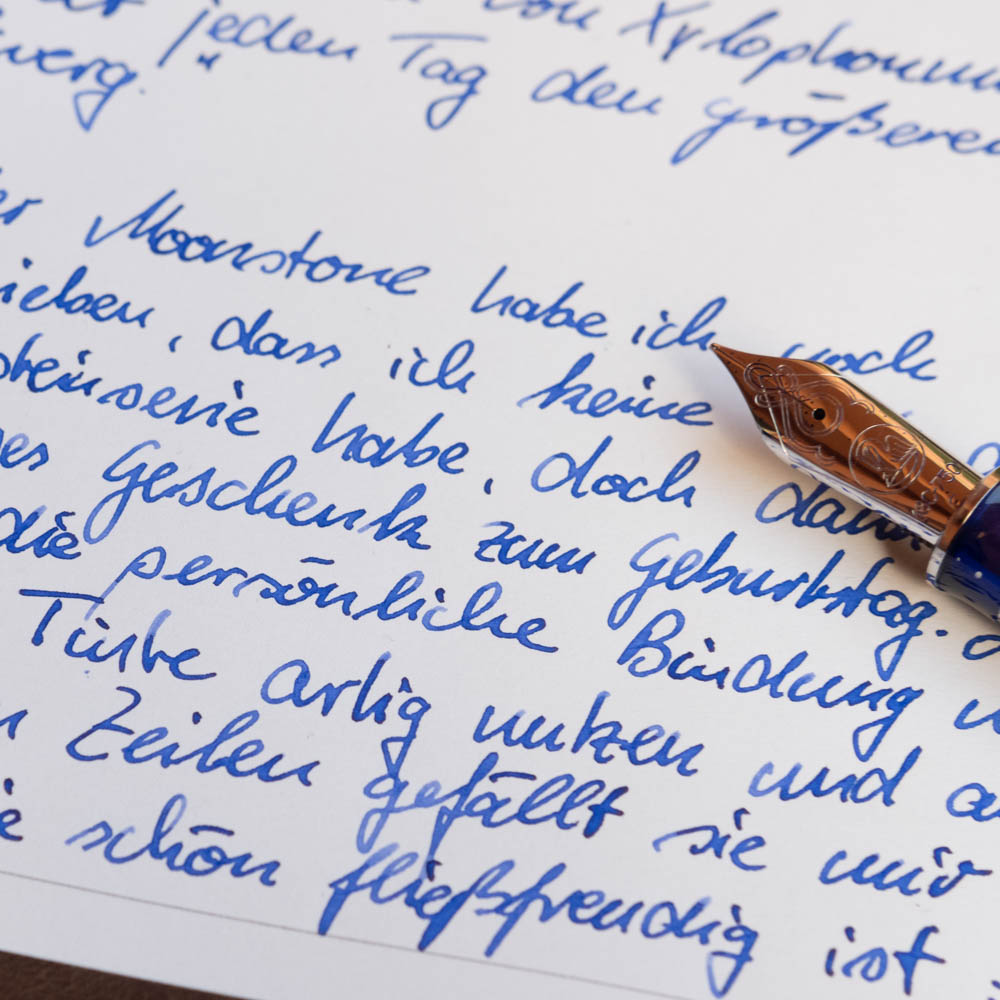 von
jeden Tag den größeren
Moonstone habe ich noch
dass ich keine
steinserie habe, doch dann
Geschenk zum Geburtstag.
die persönliche Bindung
Tinte artig nutzen und
Zeilen gefällt sie mir
schön fließfreudig ist